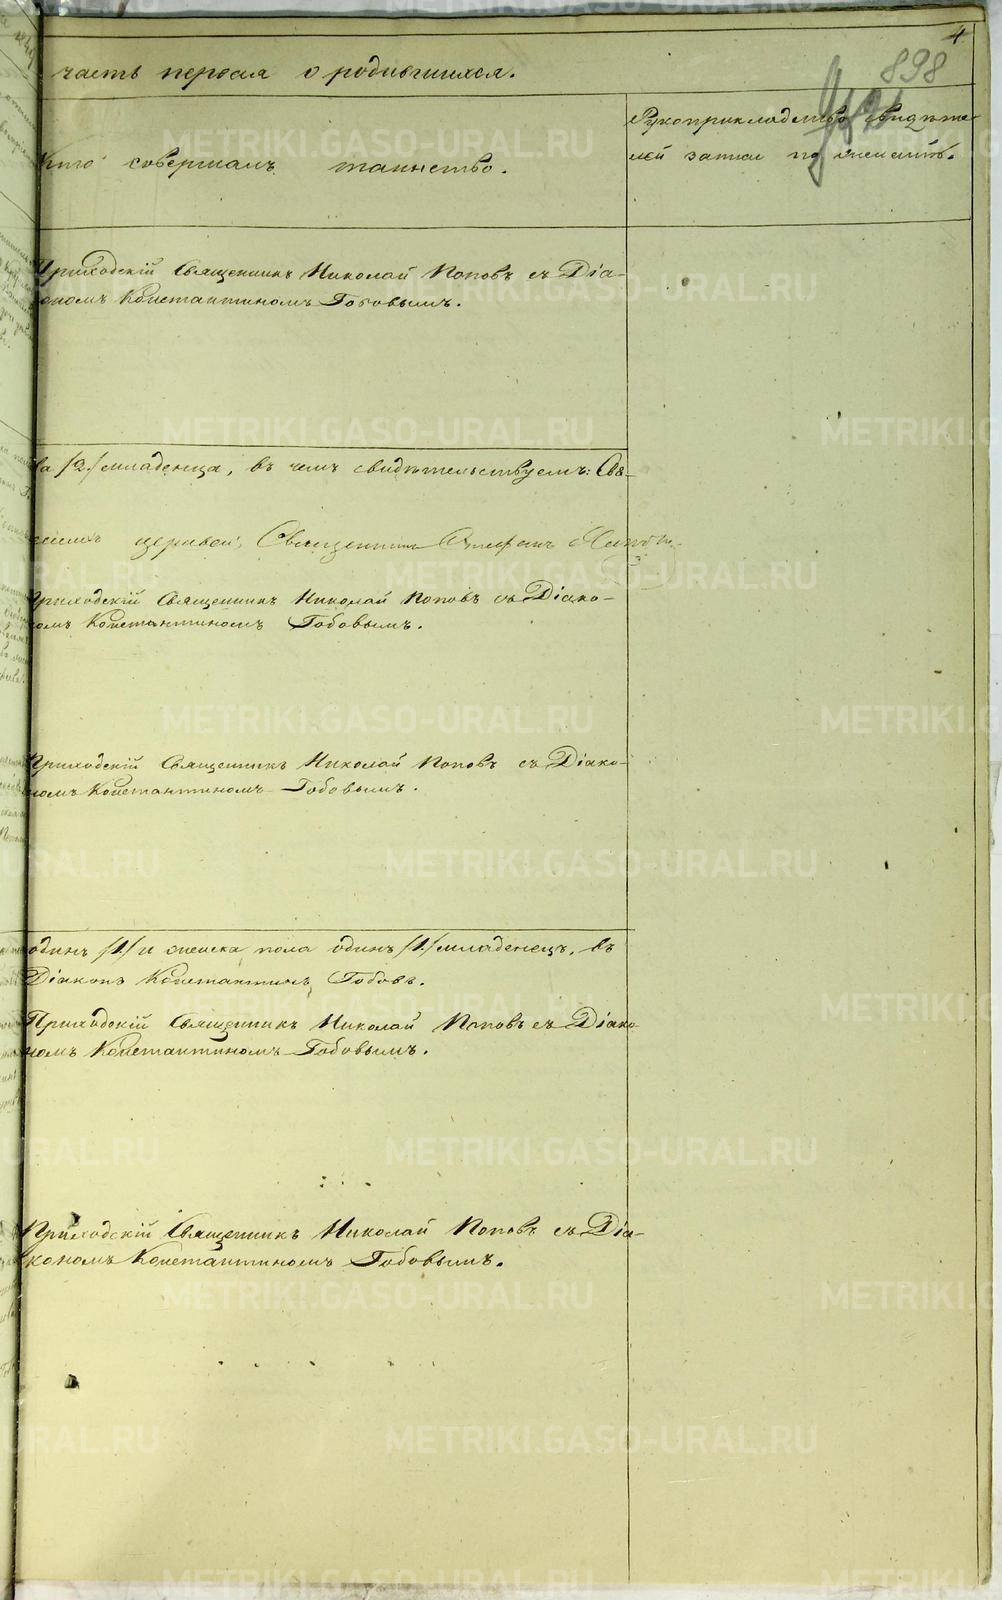 4
898
часть первая о родившихся.
Кто совершалъ таинство.
Рукоприкладство свидѣте-
лей записи по желанію.
Приходскій Священникъ Николай Поповъ съ Діа-
кономъ Константиномъ Гобовымъ.
ва /2/ младенца, въ чемъ свидѣтельствуемъ: Свя-
церкви, Священникъ Стефанъ
Приходскій Священникъ Николай Поповъ съ Діако-
номъ Константиномъ Гобовымъ.
Приходскій Священникъ Николай Поповъ съ Діако-
номъ Константиномъ Гобовымъ.
одинъ /1/ и женска пола одинъ /1/ младенецъ, въ
Діаконъ Константинъ Гобовъ.
Приходскій Священникъ Николай Поповъ съ Діако-
номъ Константиномъ Гобовымъ.
Приходскій Священникъ Николай Поповъ съ Діа-
кономъ Константиномъ Гобовымъ.
METRIKI.GASO-URAL.RU